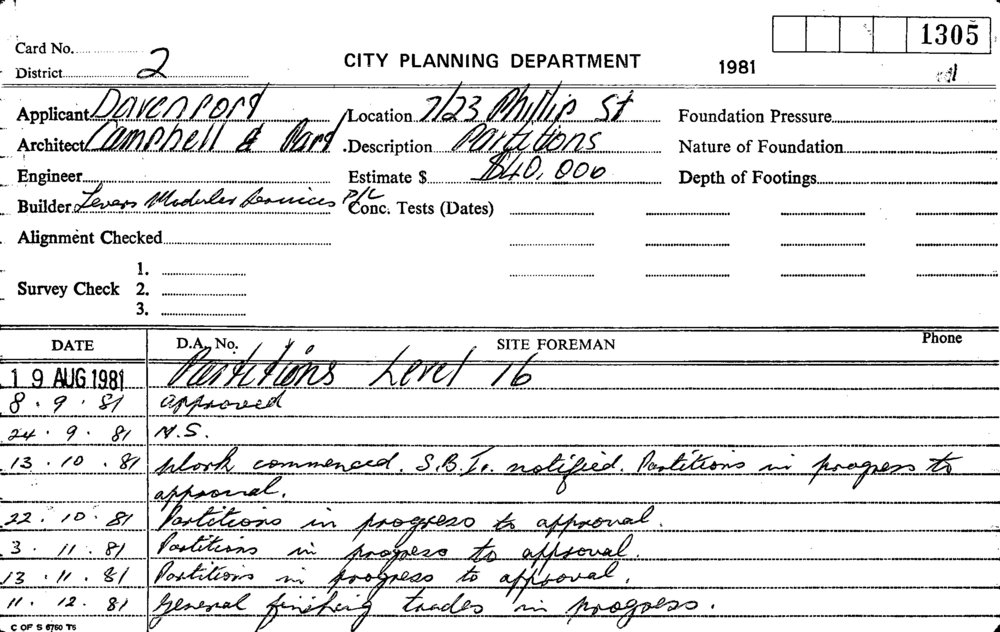 1305
Card No.
District 2
CITY PLANNING DEPARTMENT
1981
Applicant Davenport
Location 7/23 Phillip St
Foundation Pressure
Architect Campbell &
Description Partitions
Nature of Foundation
Engineer
Estimate $ $40,000
Depth of Footings
Builder Levers Moduler Services P/L
Conc. Tests (Dates)
Alignment Checked
Survey Check
1.
2.
3.
DATE D.A. No. SITE FOREMAN Phone
19 AUG 1981 Partitions Level 16
8.9.81 approved
24.9.81 N.S.
13.10.81 Work commenced. S.B.I. notified. Partitions in progress to
approval.
22.10.81 Partitions in progress to approval.
3.11.81 Partitions in progress to approval.
13.11.81 Partitions in progress to approval.
11.12.81 General finishing trades in progress.
C OF S 6760 T5